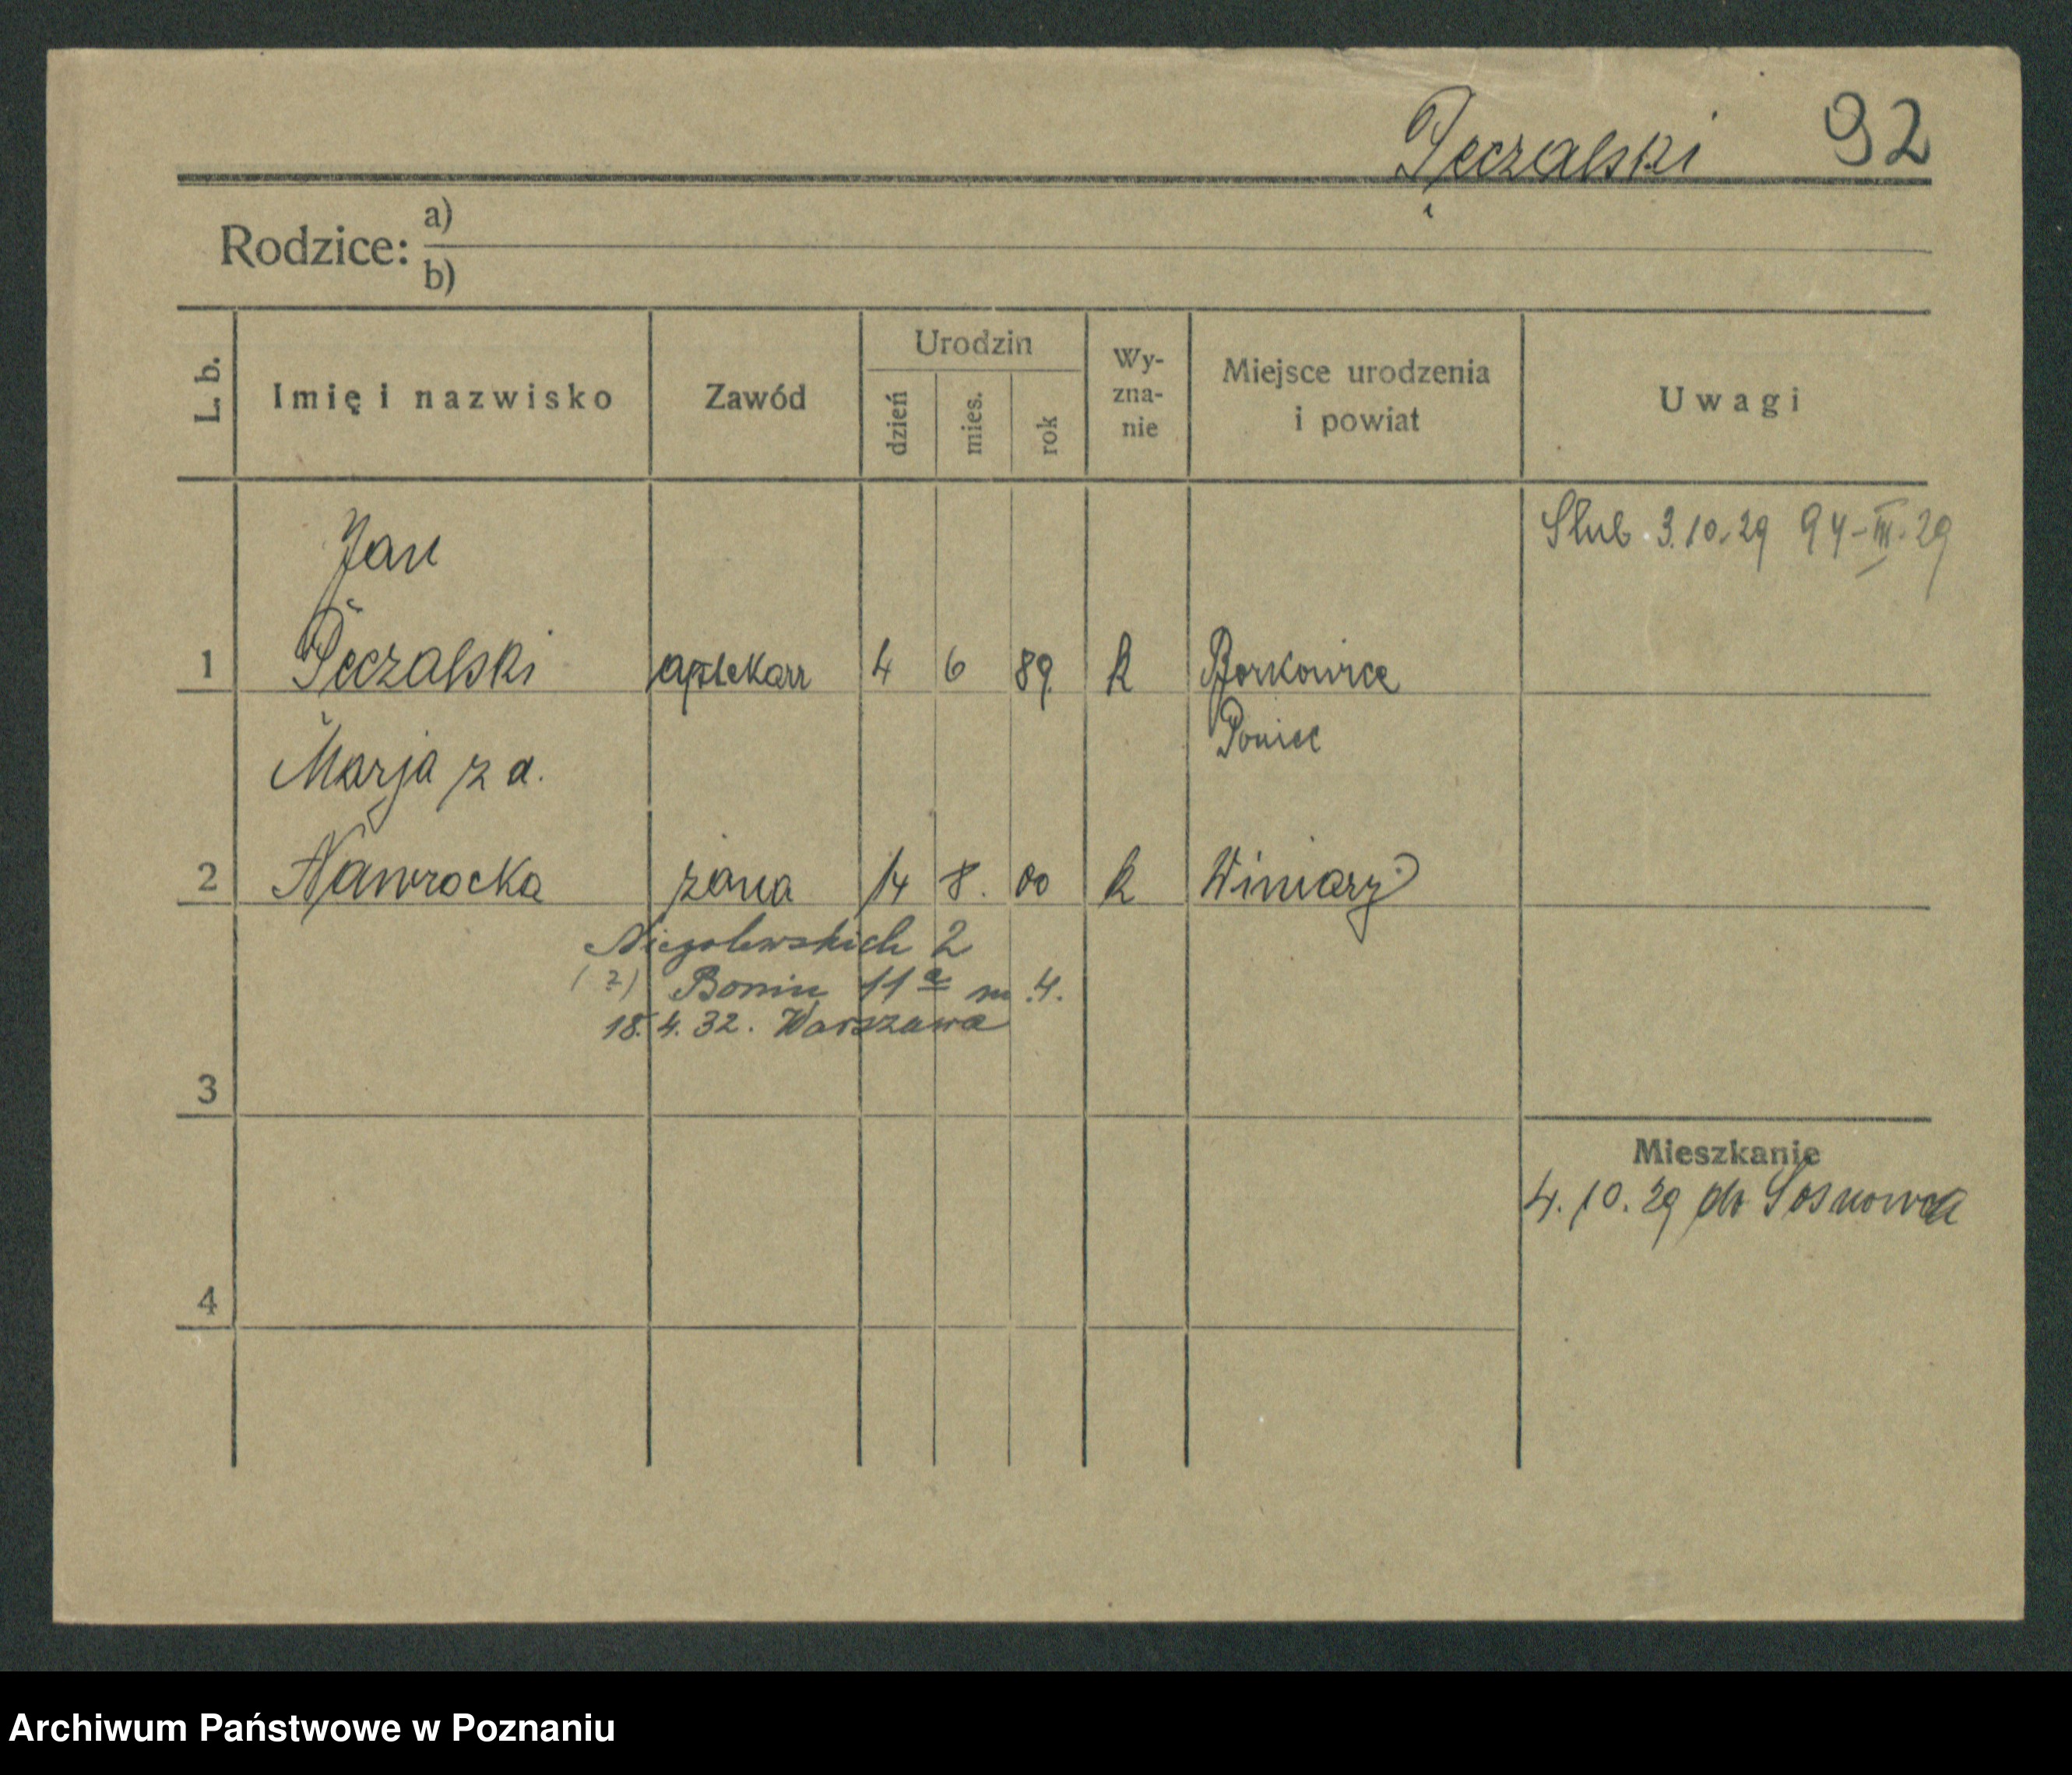 Pęczalski 92
Rodzice: a)
b)
L. b. Imię i nazwisko Zawód Urodzin dzień mies. rok Wy-zna-nie Miejsce urodzenia i powiat Uwagi
Jan Ślub 3.10.29 94-III-29
1 Pęczalski aptekarz 4 6 89 k
Poniec
Marja z d.
2 Nawrocka żona 14 8. 00 k Winiary
Niegolewskich 2
(2) Bonin 11a m. 4.
18.4.32. Warszawa
3
Mieszkanie
4.10.29 do Sosnowca
4
Archiwum Państwowe w Poznaniu